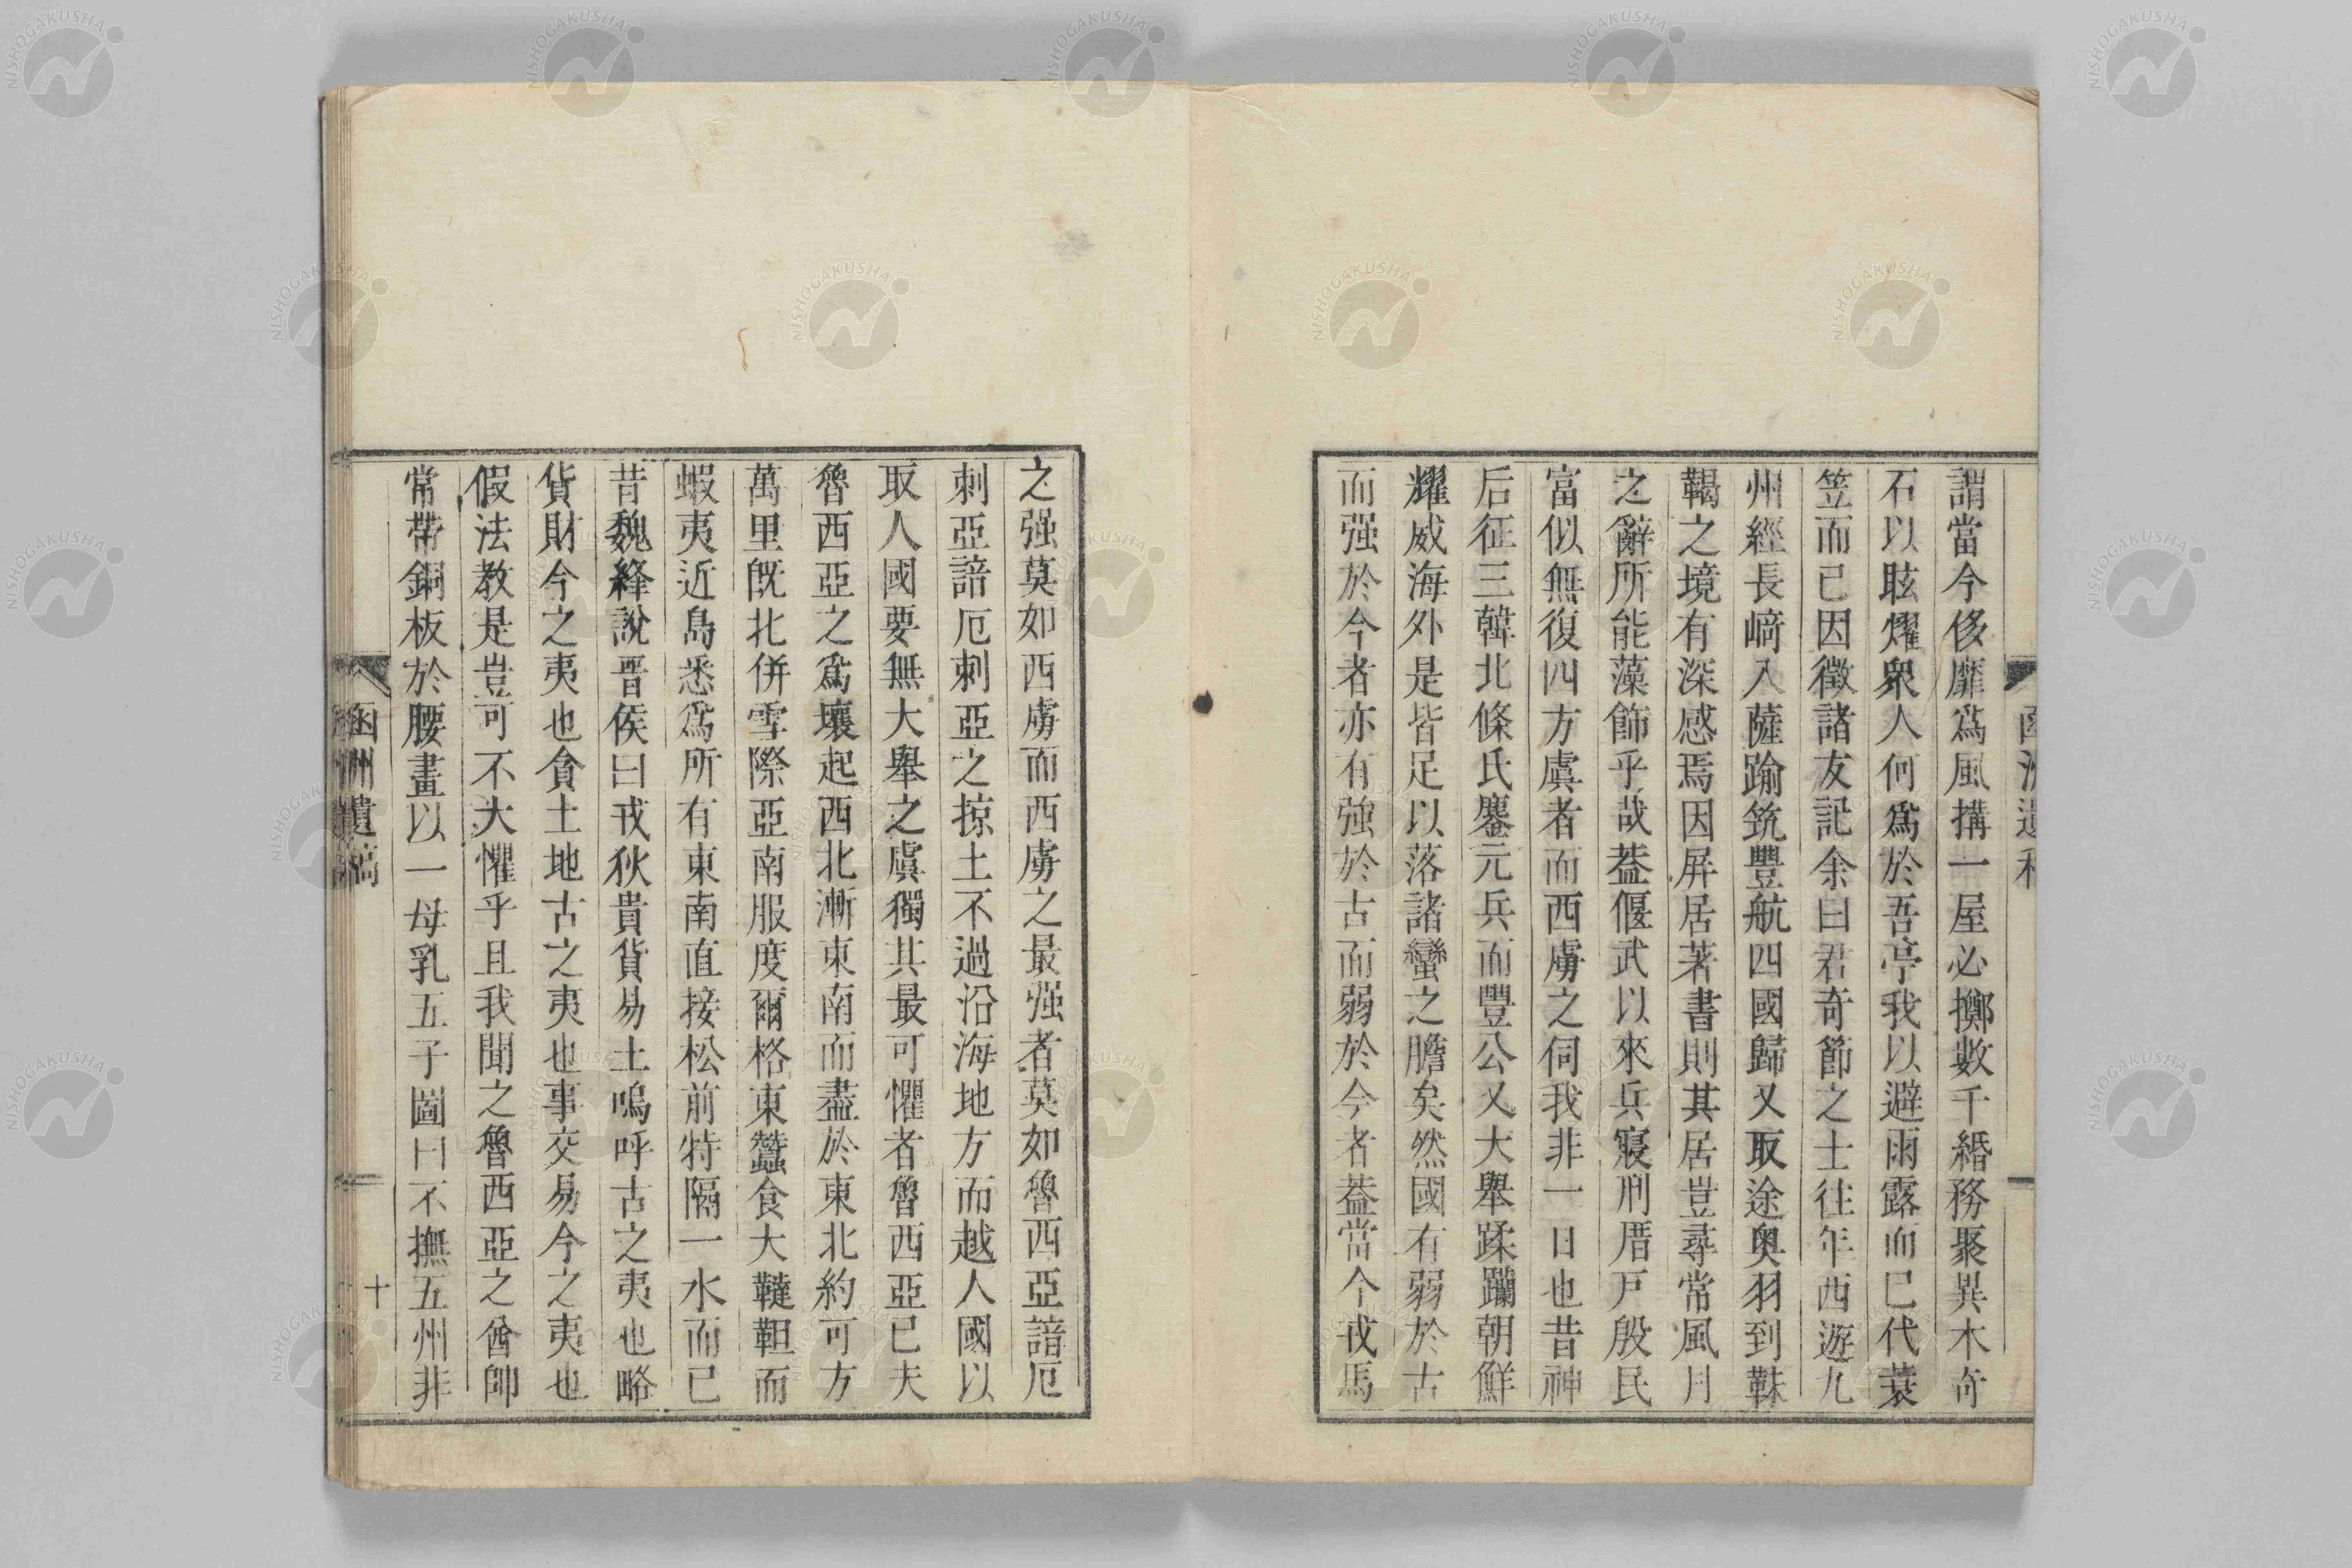 謂當今侈靡爲風搆一屋必擲數千緡務聚異木奇
石以眩燿衆人何爲於吾亭我以避雨露而已代蓑
笠而已因徵諸友記余曰君奇節之士往年西遊九
州經長﨑入薩踰筑豐航四國歸又取途奥羽到靺
鞨之境有深感焉因屏居著書則其居豈尋常風月
之辭所能藻飾乎哉葢偃武以來兵寢刑厝戸殷民
富似無復四方虞者而西虜之伺我非一日也昔神
后征三韓北條氏鏖元兵而豐公又大舉蹂躪朝鮮
耀威海外是皆足以落諸蠻之膽矣然國有弱於古
而强於今者亦有強於古而弱於今者葢當今戎馬
之强莫如西虜而西虜之最强者莫如魯西亞諳厄
刺亞諳厄刺亞之掠土不過沿海地方而越人國以
取人國要無大舉之虞獨其最可懼者魯西亞已夫
魯西亞之爲壤起西北漸東南而盡於東北約可方
萬里旣北併雪際亞南服度爾格東蠶食大韃靼而
蝦夷近島悉爲所有東南直接松前特隔一水而已
昔魏絳說晋侯曰戎狄貴貨易土嗚呼古之夷也略
貨財今之夷也貪土地古之夷也事交易今之夷也
假法教是豈可不大懼乎且我聞之魯西亞之酋帥
常帶銅板於腰畫以一母乳五子圖曰不撫五州非
函洲遺稿
十
NISHOGAKUSHA